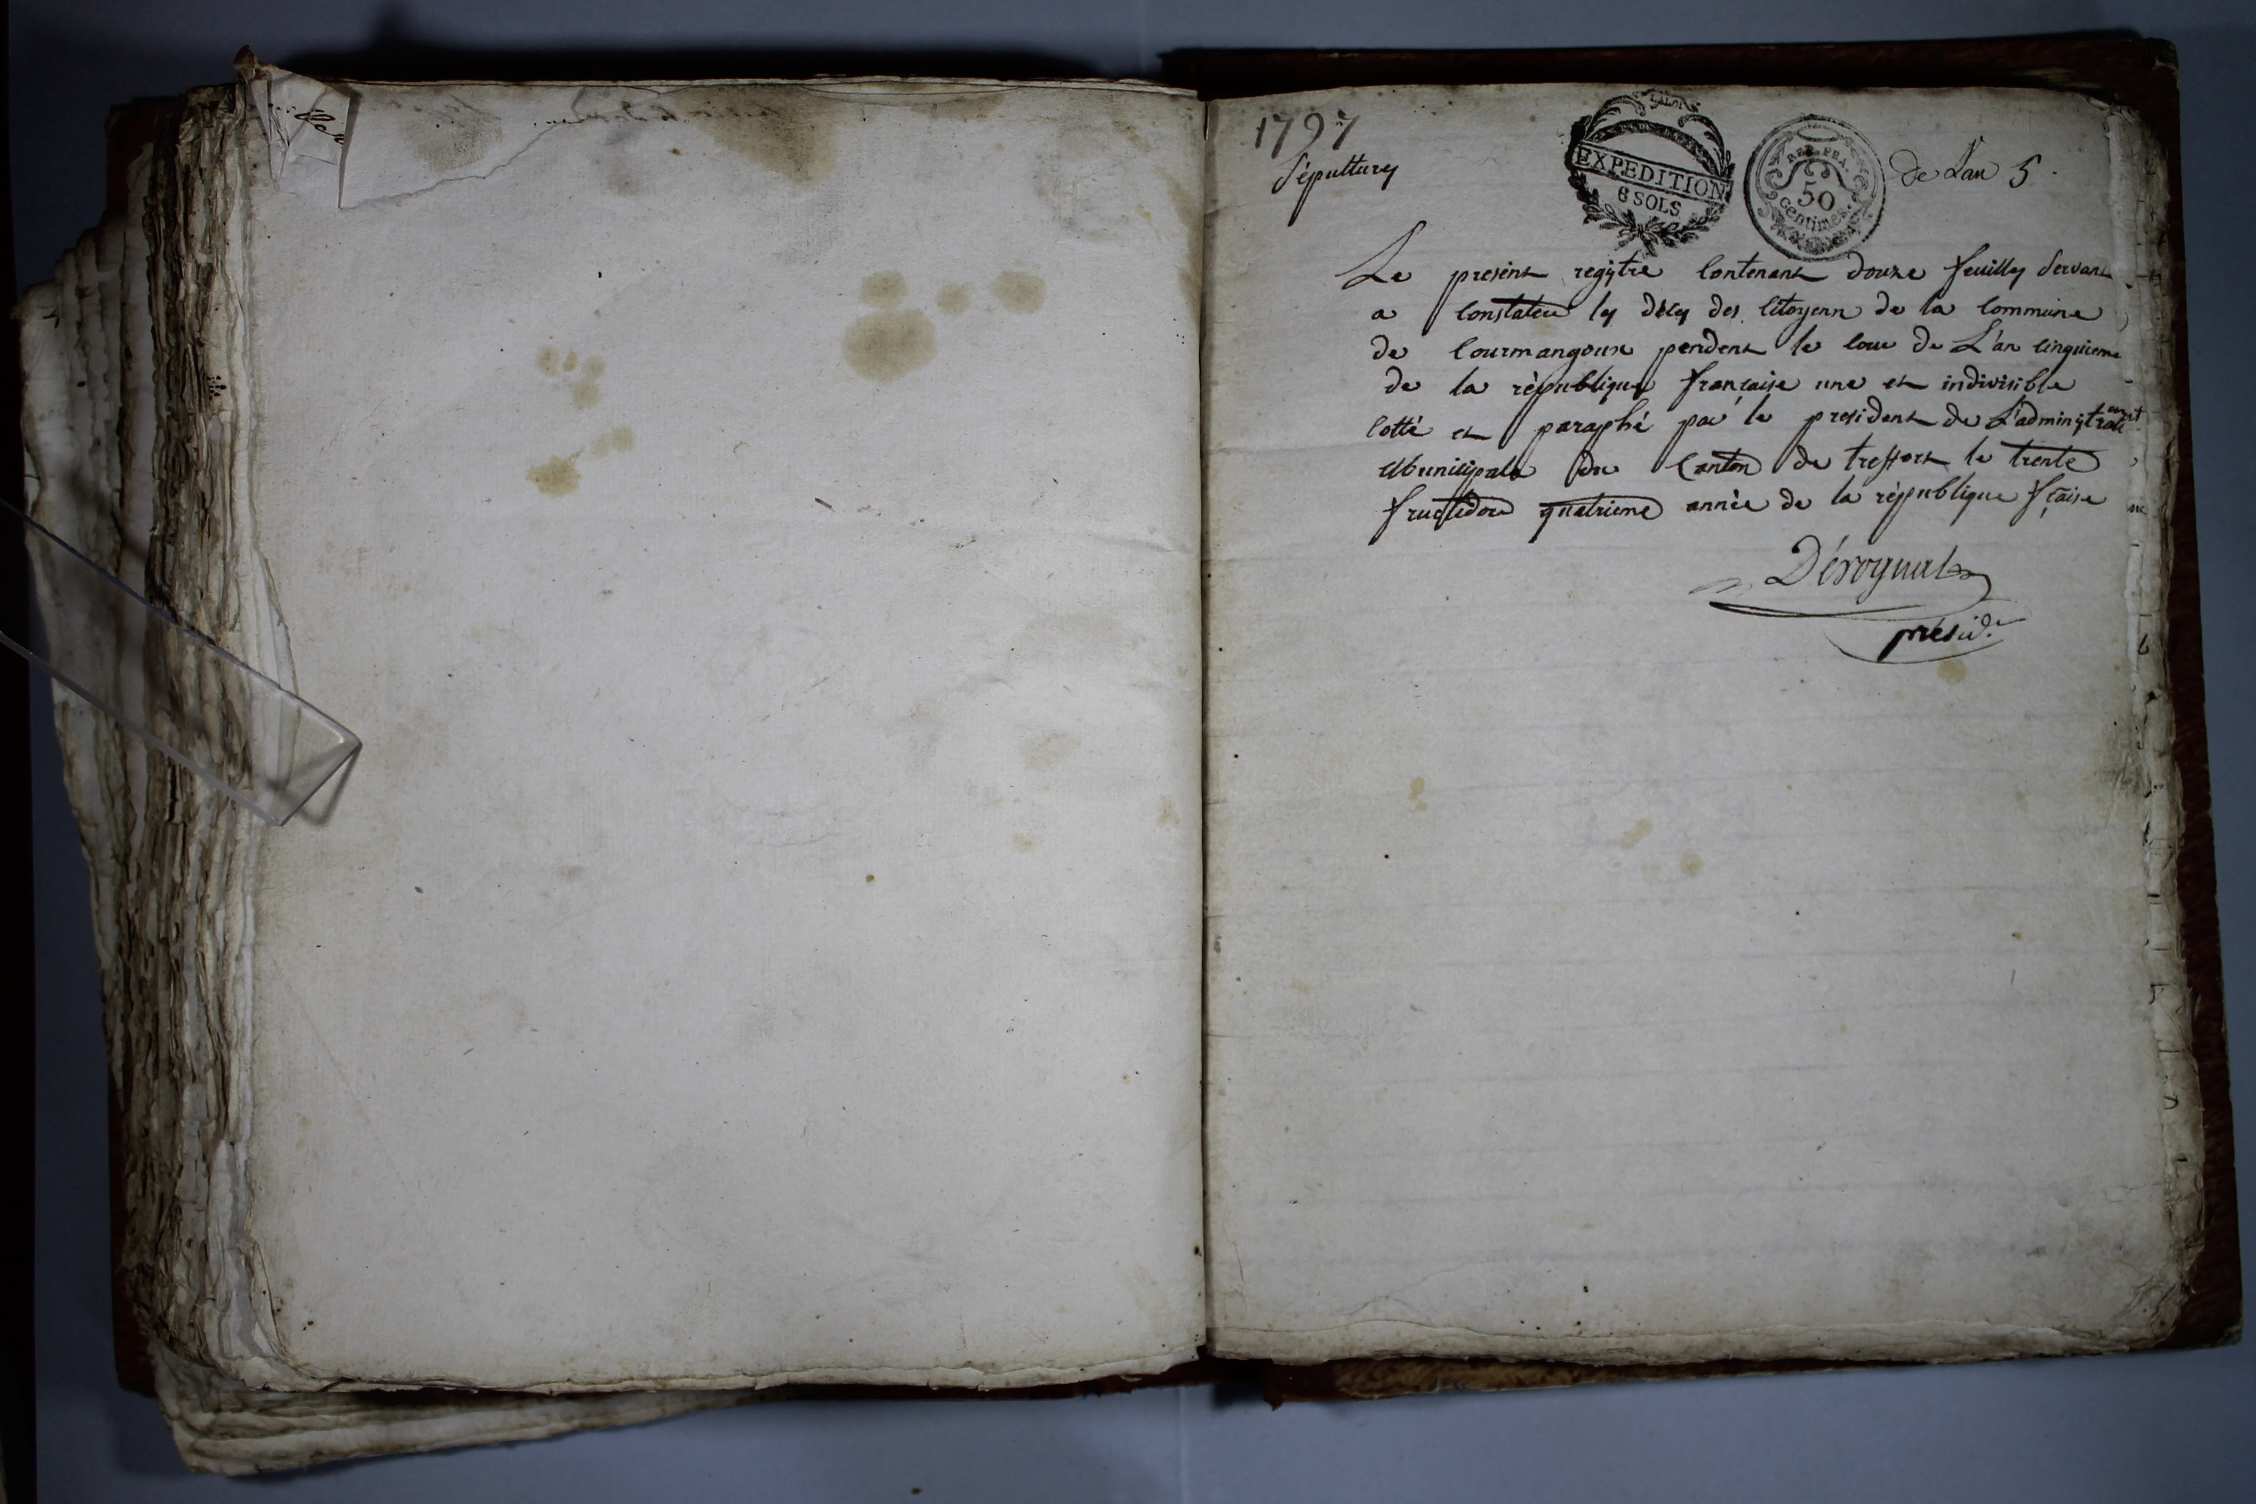 1797
Sépultures
EXPEDITION
6 SOLS
REP. FRA.
50
centimes.
de Lan 5.
Le present registre Contenant douze feuilles Servant
a Constater les déces des Citoyens de la Commune
de Courmangoux pendent le cour de L'an Cinquieme
de la république française une et indivisible
Cotté et paraphé par le president de L'administrat
Municipale du Canton de treffort le trente
fructidor quatrieme année de la république fçaise
présid.